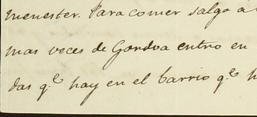 menester. Para comer salgo á
mas veces de Gordoa entro en
das q.e hay en el barrio q.e h